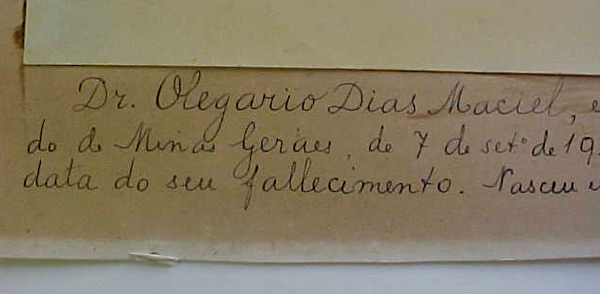 Dr. Olegario Dias Maciel, e
do de Minas Geraes, de 7 de setº de 19
data do seu fallecimento. Nasceu